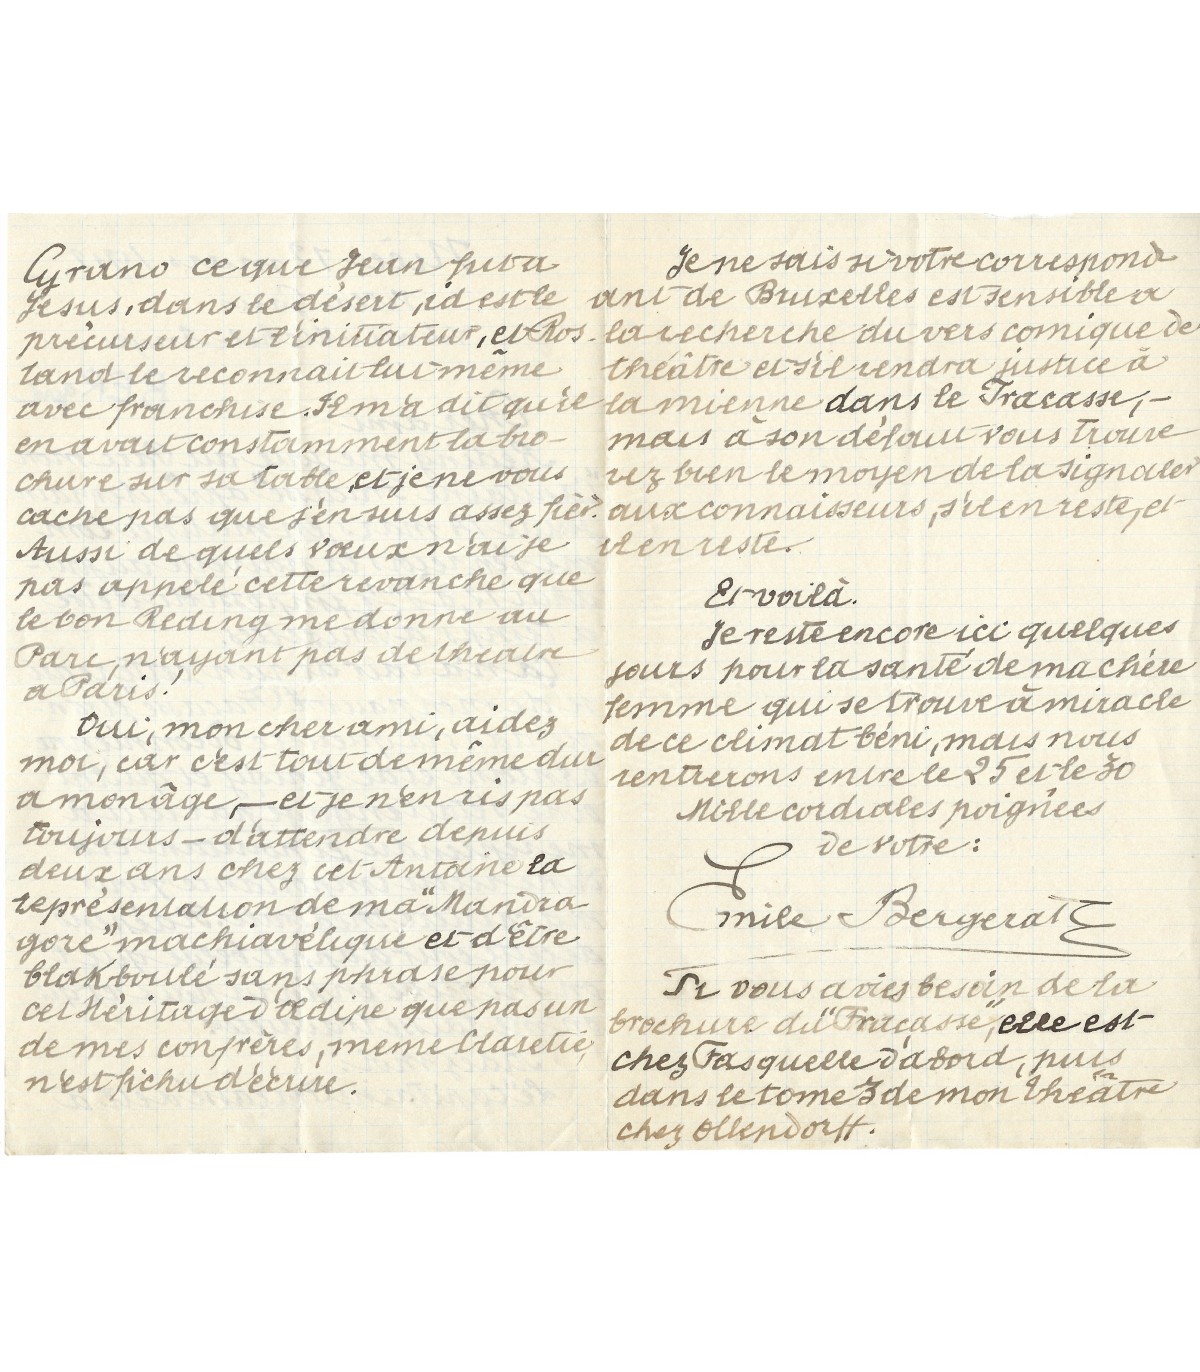 Cyrano ce que Jean fut à
Jésus, dans le désert, id est le
précurseur et l'initiateur, et Ros-
tand le reconnait lui-même
avec franchise. Il m'a dit qu'il
en avait constamment la bro-
chure sur sa table, et je ne vous
cache pas que j'en suis assez fier.
Aussi de quels vœux n'ai-je
pas appelé cette revanche que
le bon Reding me donne au
Parc, n'ayant pas de théatre
a Paris!
Oui, mon cher ami, aidez
moi, car c'est tout de même dur
a mon âge, — et je n'en ris pas
toujours — d'attendre depuis
deux ans chez cet Antoine la
représentation de ma "Mandra-
gore" machiavélique et d'être
blakboulé sans phrase pour
cet Héritage d'Œdipe que pas un
de mes confrères, meme Claretie,
n'est fichu d'écrire.
Je ne sais si votre correspond-
ant de Bruxelles est sensible a
la recherche du vers comique de
théâtre et s'il rendra justice à
la mienne dans le Fracasse, —
mais à son défaut vous trouve
rez bien le moyen de la signaler
aux connaisseurs, s'il en reste, et
il en reste.
Et voilà.
Je reste encore ici quelques
jours pour la santé de ma chère
femme qui se trouve à miracle
de ce climat béni, mais nous
rentrerons entre le 25 et le 30
Mille cordiales poignées
de votre:
Emile Bergerat
Si vous aviez besoin de la
brochure du "Fracasse", elle est
chez Fasquelle d'abord, puis
dans le tome 3 de mon théâtre
chez Ollendorff.